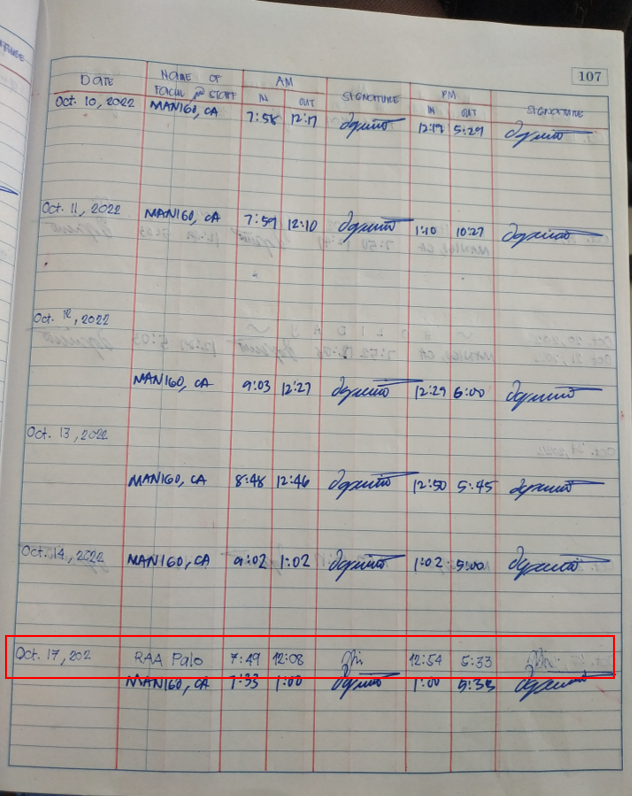 107
DATE NAME OF FACUL @ STAFF AM SIGNATURE PM SIGNATURE
IN OUT IN OUT
Oct. 10, 2022 MANIGO, CA 7:58 12:17 12:19 5:29
Oct. 11, 2022 MANIGO, CA 7:59 12:10 1:10 10:27
Oct. 12, 2022
MANIGO, CA 9:03 12:27 12:29 6:00
Oct. 13, 2022
MANIGO, CA 8:48 12:46 12:50 5:45
Oct. 14, 2022 MANIGO, CA 9:02 1:02 1:02 5:00
Oct. 17, 202 RAA Palo 7:49 12:08 12:54 5:33
MANIGO, CA 7:33 1:00 1:00 5:35